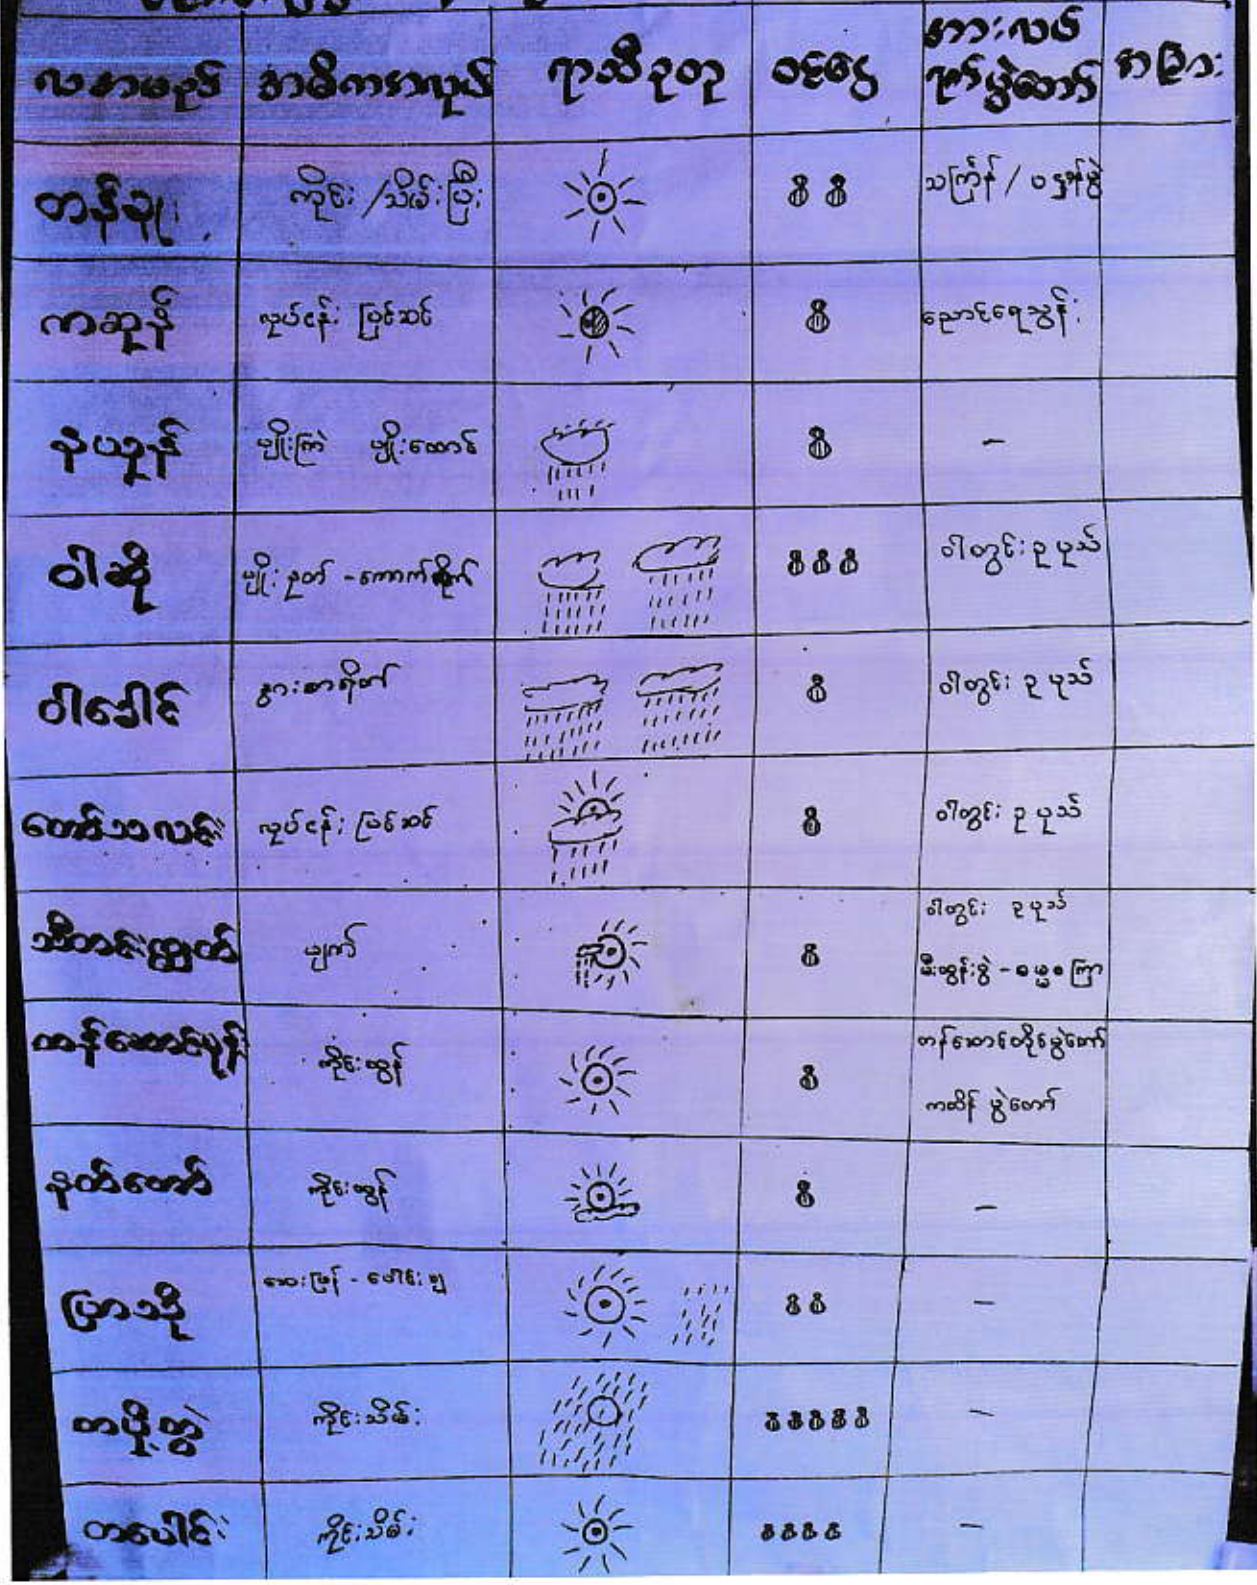 လအမည် အဓိကအလုပ် ရာသီဥတု ဝင်ငွေ အားလပ် အခြား
ရက်ပွဲတော်
တန်ခူး ကိုင်း/သိမ်းပြီး သင်္ကြန် / ဗုဒ္ဓပွဲ
ကဆုန် လုပ်ငန်း ပြင်ဆင် ညောင်ရေသွန်း
နယုန် မျိုးကြဲ မျိုးထောင် –
ဝါဆို မျိုးနုတ် - ကောက်စိုက် ဝါတွင်း ဥပုသ်
ဝါခေါင် နွားစာရိတ် ဝါတွင်း ဥပုသ်
တော်သလင်း လုပ်ငန်း ပြင်ဆင် ဝါတွင်း ဥပုသ်
သီတင်းကျွတ် မျက် ဝါတွင်း ဥပုသ်
မီးထွန်းပွဲ - ဓမ္မစကြာ
တန်ဆောင်မုန်း ကိုင်းထွန် တန်ဆောင်တိုင်ပွဲတော်
ကထိန် ပွဲတော်
နတ်တော် ကိုင်းထွန် –
ပြာသို ဆေးဖြန် - ပေါင်းချ –
တပို့တွဲ ကိုင်းသိမ်း –
တပေါင်း ကိုင်းသိမ်း –